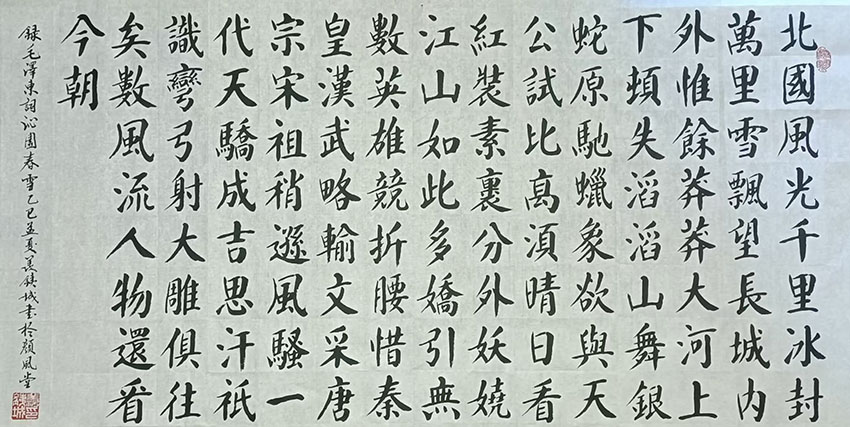 北國風光千里冰封
萬里雪飄望長城內
外惟餘莽莽大河上
下頓失滔滔山舞銀
蛇原馳蠟象欲與天
公試比高須晴日看
紅裝素裹分外妖嬈
江山如此多嬌引無
數英雄競折腰惜秦
皇漢武略輸文采唐
宗宋祖稍遜風騷一
代天驕成吉思汗祇
識彎弓射大雕俱往
矣數風流人物還看
今朝
錄毛澤東詞沁園春雪乙巳孟夏姜鎮城書於顏風堂